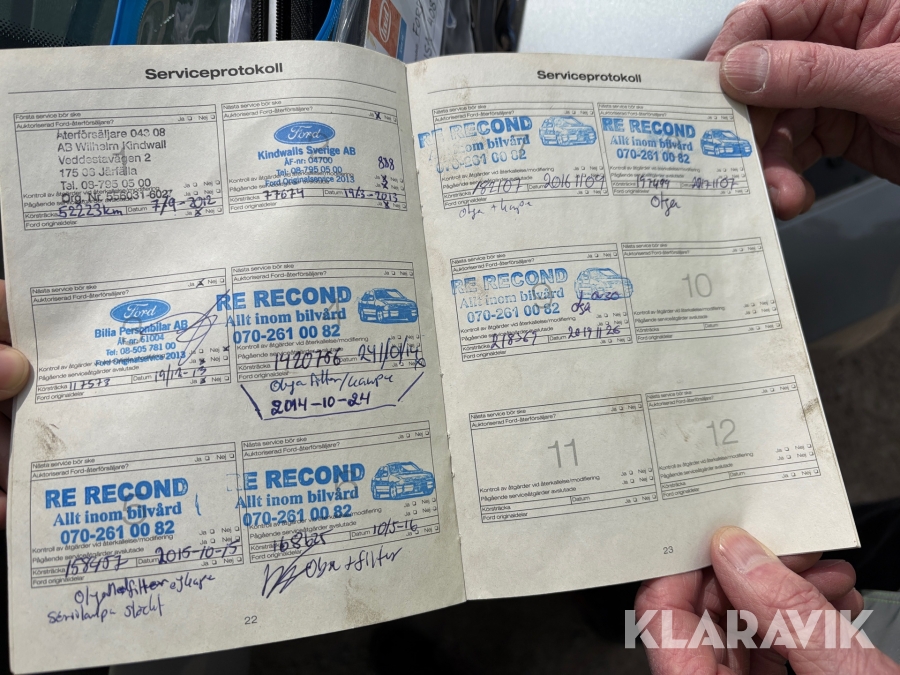 Serviceprotokoll
Första service bör ske
Auktoriserad Ford-återförsäljare? Ja Nej
Återförsäljare 043 08
AB Wilhelm Kindwall
Veddestavägen 2
175 62 Järfälla
Tel. 08-795 05 00
Org. Nr. 556031-6027
Körsträcka 52223km Datum 7/9-2012
Ford originaldelar Ja Nej
Nästa service bör ske
Auktoriserad Ford-återförsäljare? Ja Nej
Ford
Kindwalls Sverige AB
ÅF-nr: 04700
Tel. 08-795 05 00
Ford Originalservice 2013
Körsträcka 77671 Datum 19/3-2013
Ford originaldelar Ja Nej
Nästa service bör ske
Auktoriserad Ford-återförsäljare? Ja Nej
Ford
Bilia Personbilar AB
ÅF nr: 61004
Tel: 08-505 781 00
Ford Originalservice 2013
Kontroll av åtgärder vid återkallelse/modifiering Ja Nej
Pågående serviceåtgärder avslutade Ja Nej
Körsträcka 117573 Datum 19/12-13
Ford originaldelar Ja Nej
Nästa service bör ske
Auktoriserad Ford-återförsäljare? Ja Nej
RE RECOND
Allt inom bilvård
070-261 00 82
Kontroll av åtgärder vid återkallelse/modifiering
Pågående serviceåtgärder
Körsträcka Datum
Ford originaldelar
2014-10-24
Nästa service bör ske
Auktoriserad Ford-återförsäljare? Ja Nej
RE RECOND
Allt inom bilvård
070-261 00 82
Kontroll av åtgärder vid återkallelse/modifiering
Pågående serviceåtgärder avslutade
Körsträcka 158407 Datum 2015-10-15
Ford originaldelar
Nästa service bör ske
Auktoriserad Ford-återförsäljare? Ja Nej
RE RECOND
Allt inom bilvård
070-261 00 82
Kontroll av åtgärder vid återkallelse/modifiering
Pågående serviceåtgärder avslutade
Körsträcka 168625 Datum 10/5-16
Ford originaldelar
22
Serviceprotokoll
Nästa service bör ske
Auktoriserad Ford-återförsäljare? Ja Nej
RE RECOND
Allt inom bilvård
070-261 00 82
Datum
Ford originaldelar
Nästa service bör ske
Auktoriserad Ford-återförsäljare? Ja Nej
RE RECOND
Allt inom bilvård
070-261 00 82
Ford originaldelar
Olja
Nästa service bör ske
Auktoriserad Ford-återförsäljare? Ja Nej
RE RECOND
Allt inom bilvård
070-261 00 82
Kontroll av åtgärder vid återkallelse/modifiering
Pågående serviceåtgärder avslutade
Körsträcka 218369 Datum
Ford originaldelar
Nästa service bör ske
Auktoriserad Ford-återförsäljare? Ja Nej
10
Kontroll av åtgärder vid återkallelse/modifiering Ja Nej
Pågående serviceåtgärder avslutade Ja Nej
Körsträcka Datum
Ford originaldelar Ja Nej
Nästa service bör ske
Auktoriserad Ford-återförsäljare? Ja Nej
11
Kontroll av åtgärder vid återkallelse/modifiering Ja Nej
Pågående serviceåtgärder avslutade Ja Nej
Körsträcka Datum
Ford originaldelar Ja Nej
Nästa service bör ske
Auktoriserad Ford-återförsäljare? Ja Nej
12
Kontroll av åtgärder vid återkallelse/modifiering Ja Nej
Pågående serviceåtgärder avslutade Ja Nej
Körsträcka Datum
Ford originaldelar Ja Nej
23
KLARAVIK